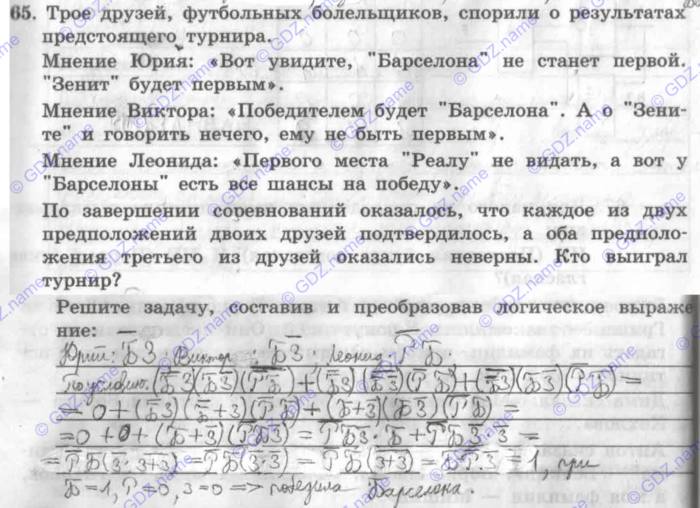 65. Трое друзей, футбольных болельщиков, спорили о результатах
предстоящего турнира.
Мнение Юрия: «Вот увидите, "Барселона" не станет первой.
"Зенит" будет первым».
Мнение Виктора: «Победителем будет "Барселона". А о "Зени-
те" и говорить нечего, ему не быть первым».
Мнение Леонида: «Первого места "Реалу" не видать, а вот у
"Барселоны" есть все шансы на победу».
По завершении соревнований оказалось, что каждое из двух
предположений двоих друзей подтвердилось, а оба предполо-
жения третьего из друзей оказались неверны. Кто выиграл
турнир?
Решите задачу, составив и преобразовав логическое выраже
ние:
Юрий: Б̅З; Виктор: БЗ̅ Леонид: Р̅Б
По условию:
= 0 +
= 0 + 0 +
= 1, при
Б=1, Р=0, З=0 => победила Барселона.
© GDZ.name